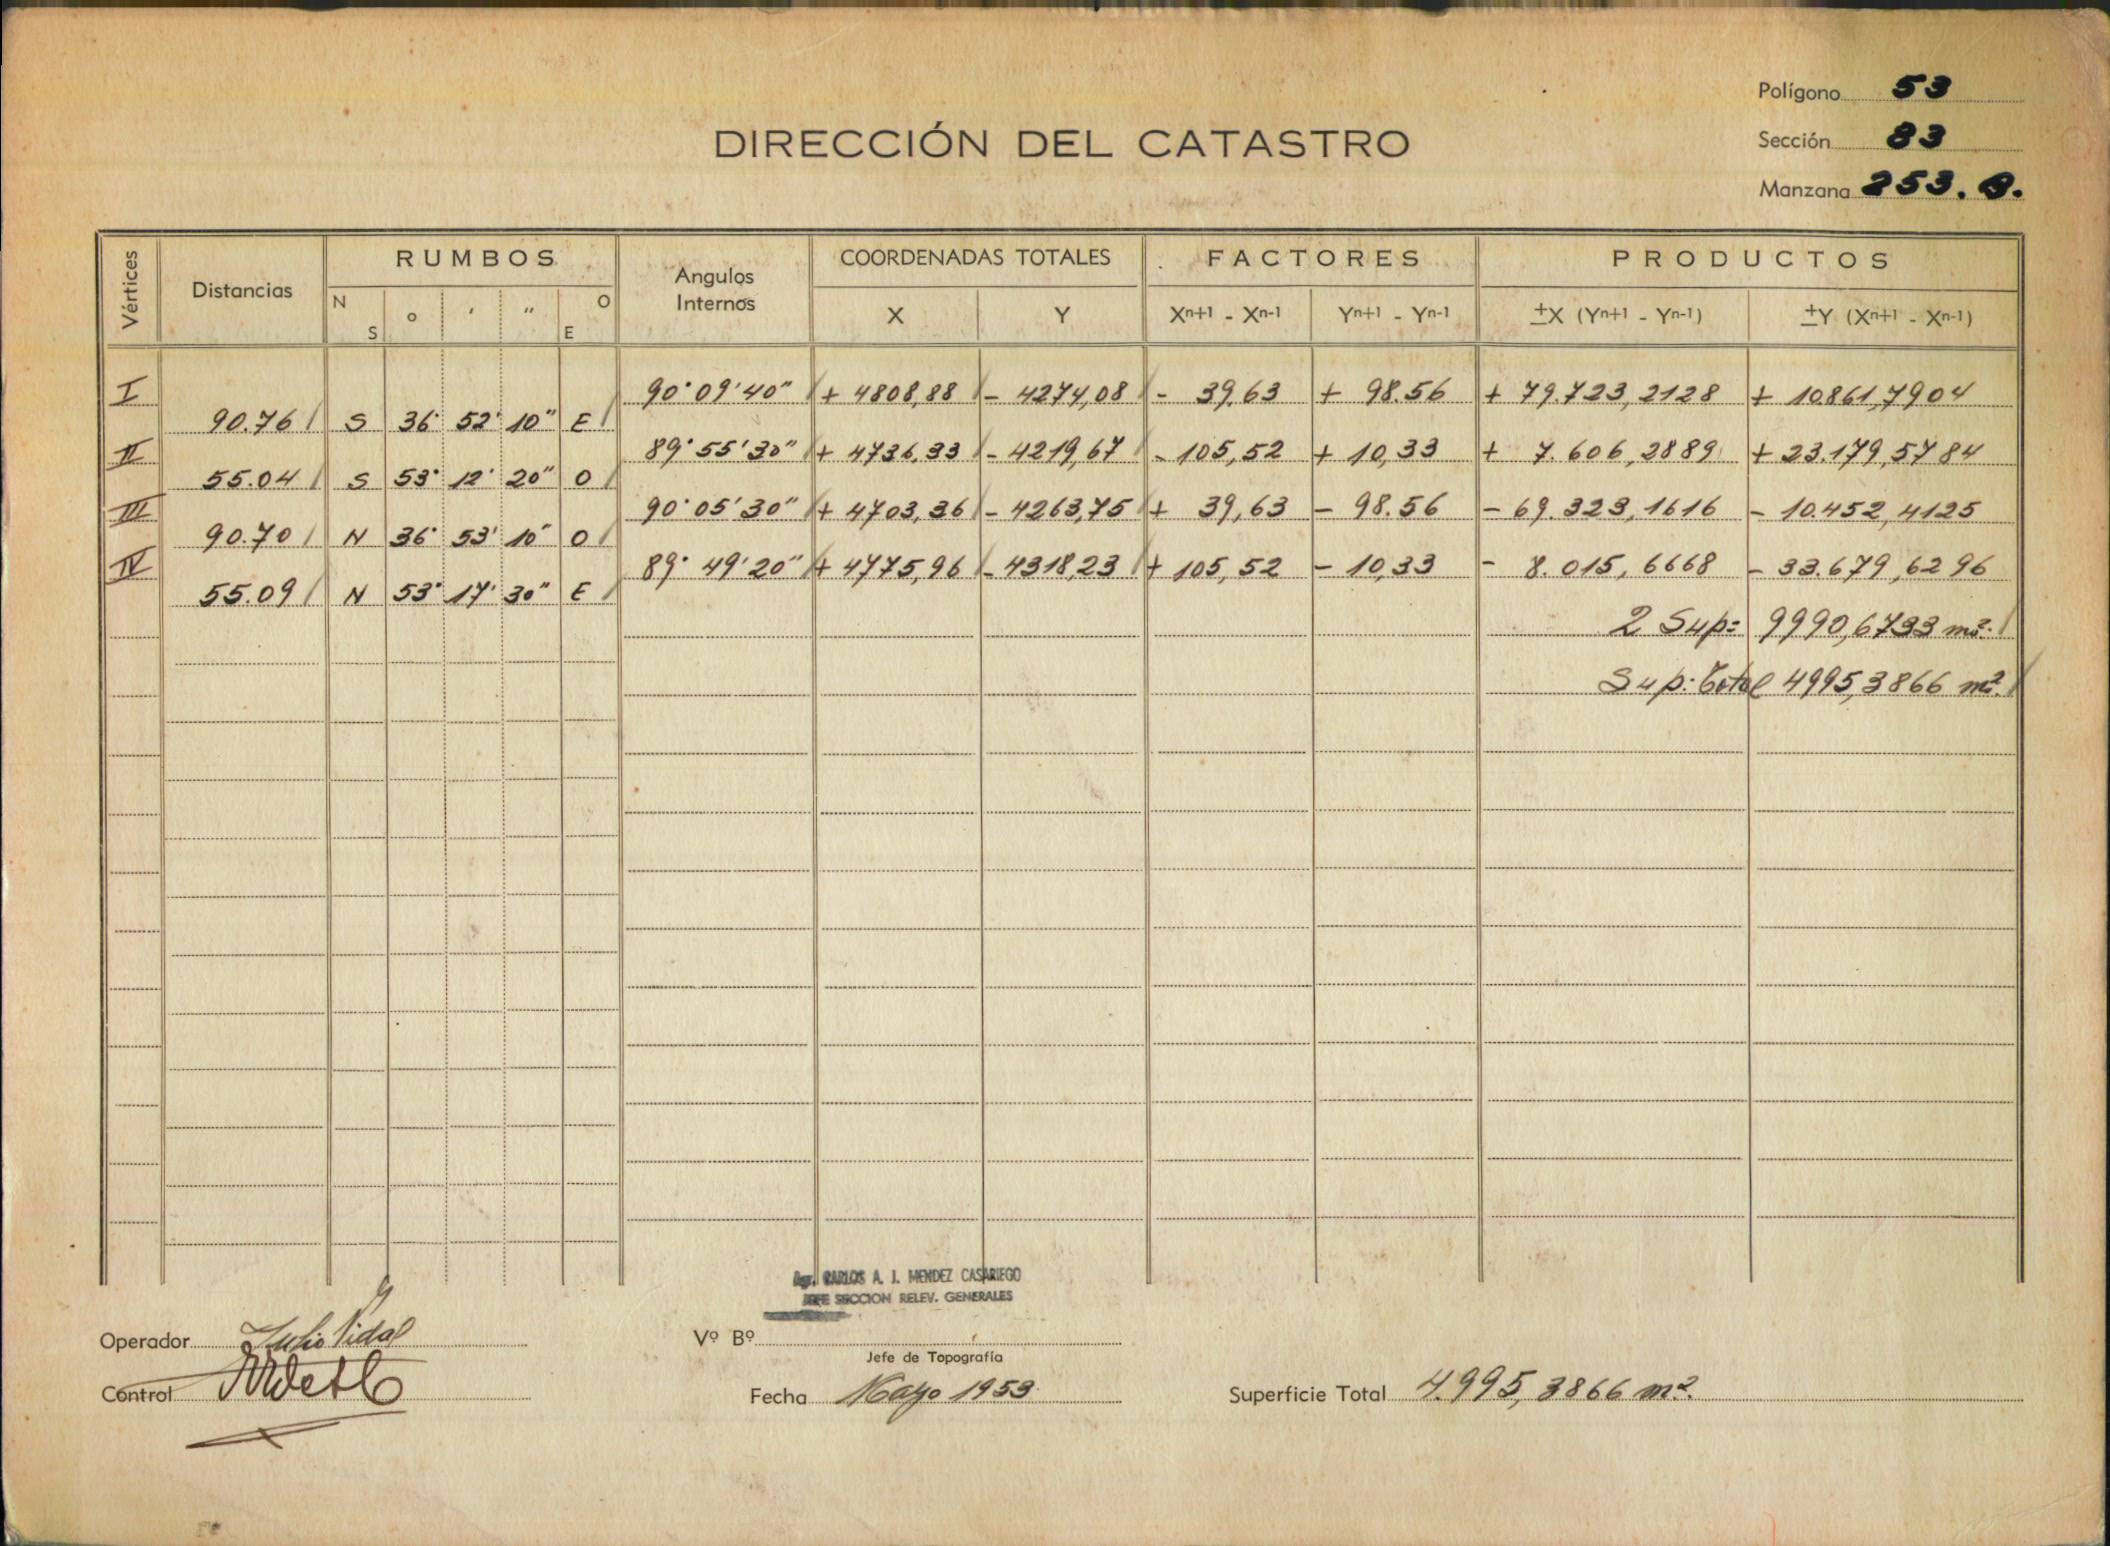 Polígono 53
DIRECCIÓN DEL CATASTRO
Sección 83
Manzana 253. B.
Vértices Distancias RUMBOS Angulos Internos COORDENADAS TOTALES FACTORES PRODUCTOS
N S o ' " O E X Y Xn+1 - Xn-1 Yn+1 - Yn-1 ±X (Yn+1 - Yn-1) ±Y (Xn+1 - Xn-1)
I 90°09'40" + 4808,88 - 4274,08 - 39,63 + 98.56 + 79.723,2128 + 10861,7904
90.76 S 36° 52' 10" E
II 89°55'30" + 4736,33 - 4219,67 - 105,52 + 10,33 + 7.606,2889 + 23.179,5784
55.04 S 53° 12' 20" O
III 90°05'30" + 4703,36 - 4263,75 + 39,63 - 98.56 - 69.323,1616 - 10.452,4125
90.70 N 36° 53' 10" O
IV 89°49'20" + 4775,96 - 4318,23 + 105,52 - 10,33 - 8.015,6668 - 33.679,6296
55.09 N 53° 17' 30" E
2 Sup= 9990,6733 m².
Sup: Total 4995,3866 m².
Agr. CARLOS A. J. MENDEZ CASARIEGO
JEFE SECCION RELEV. GENERALES
Operador Julio Vidal
Vº Bº
Jefe de Topografía
Control
Fecha Mayo 1953
Superficie Total 4.995,3866 m².